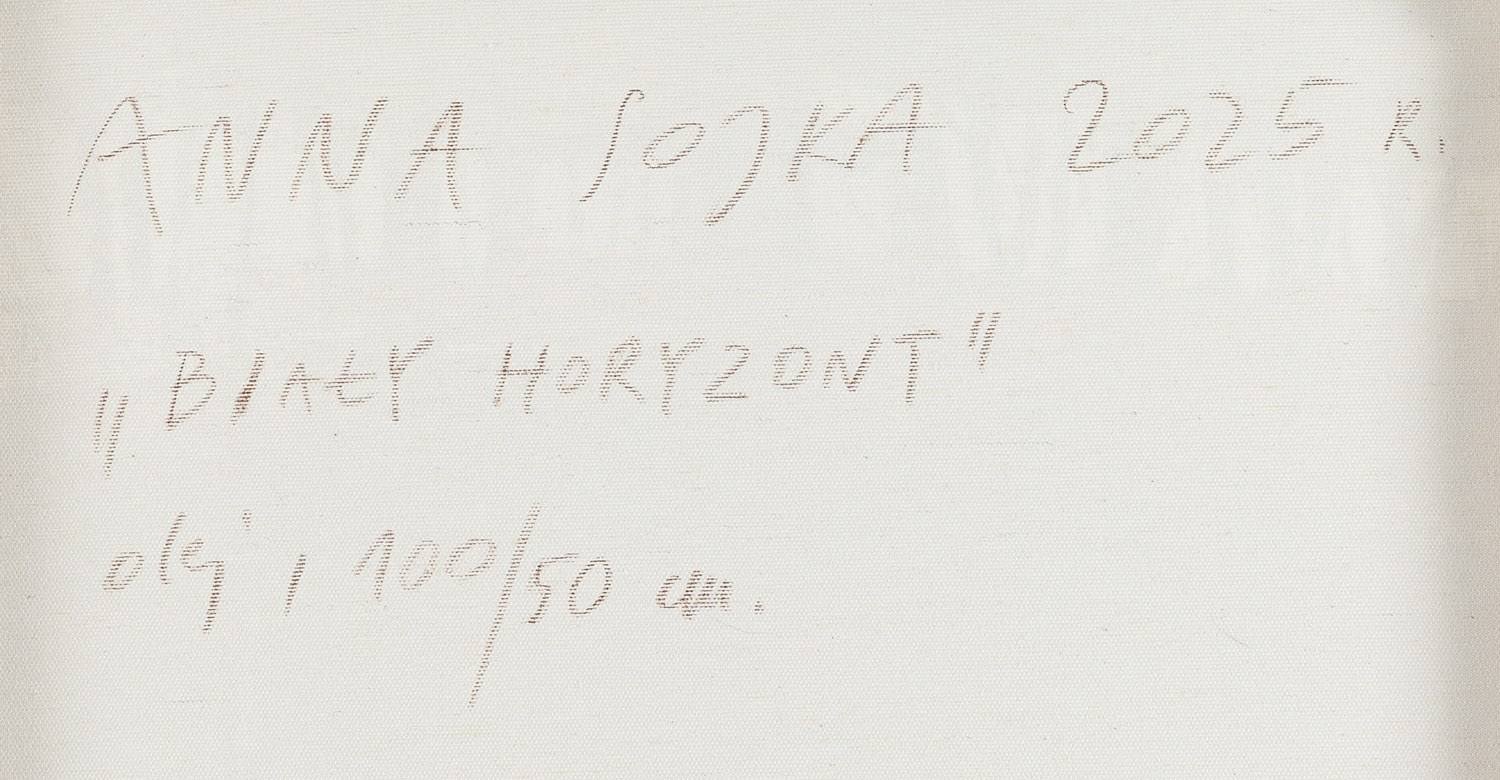 ANNA SOJKA 2025 R.
„BIAŁY HORYZONT"
olej, 100/50 cm.